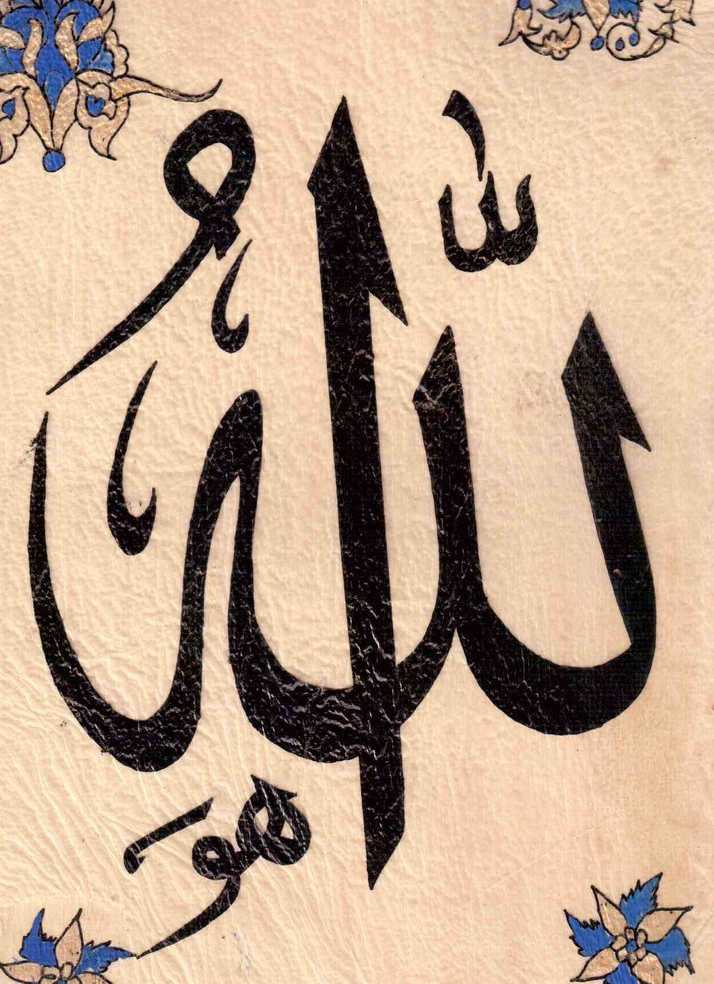 اللّٰهُ
هوَ